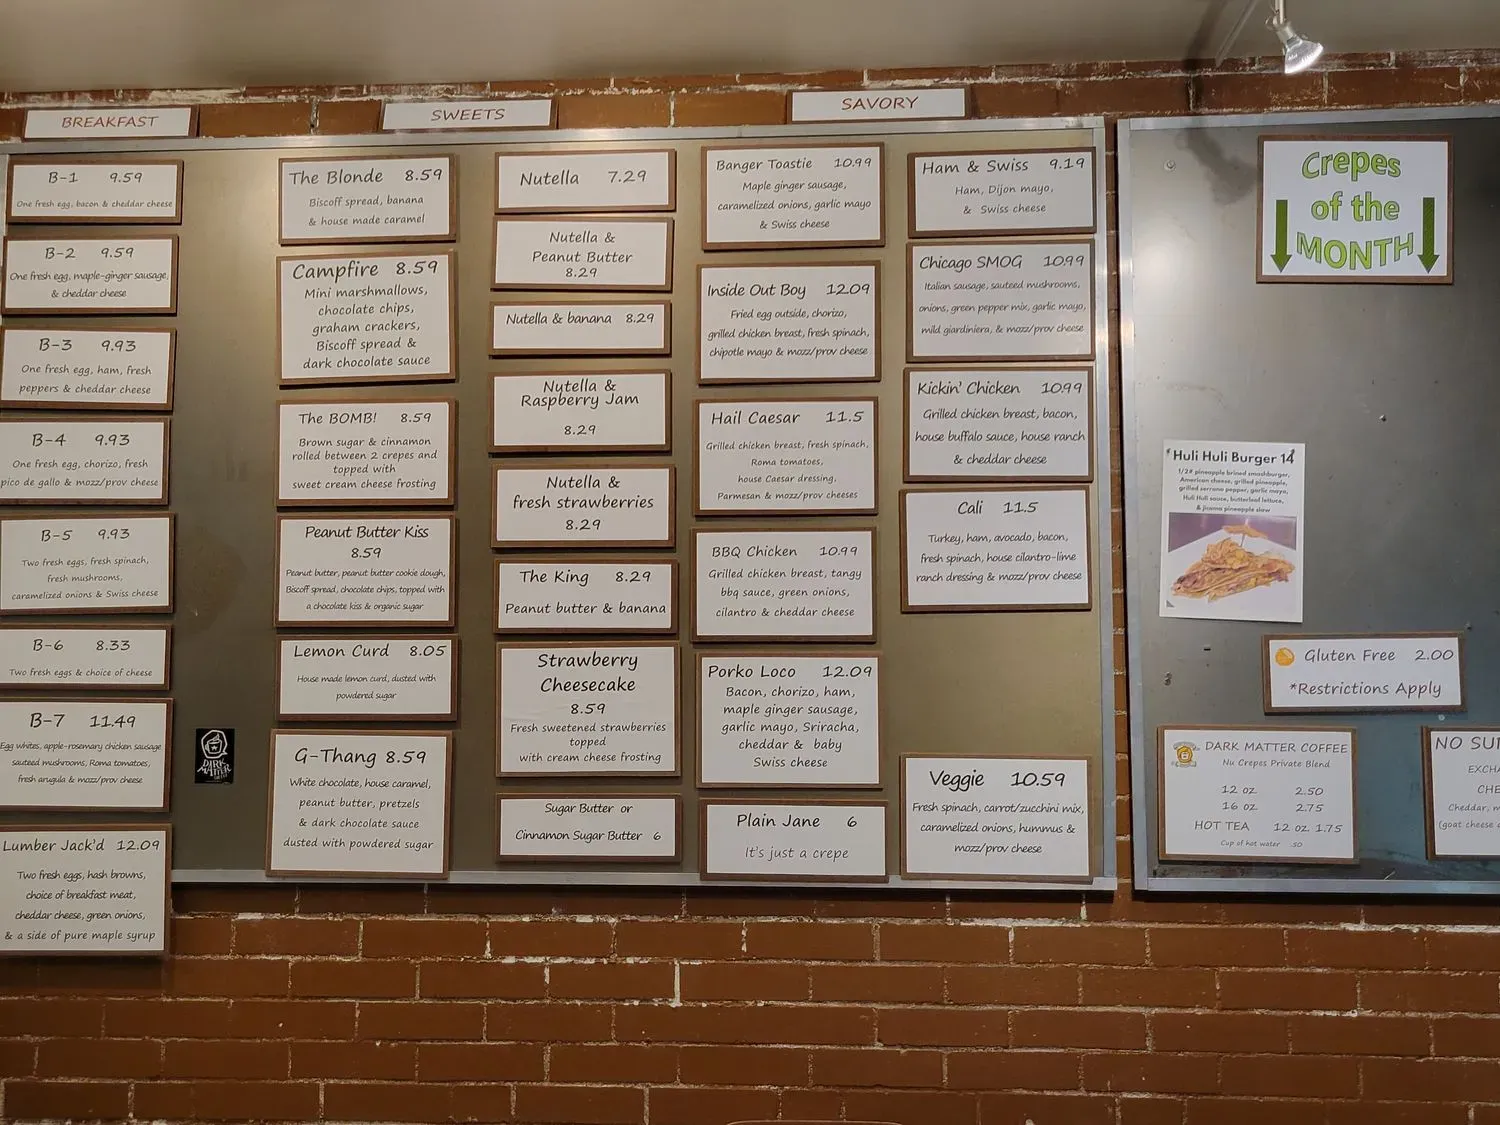 BREAKFAST
B-1 9.59
One fresh egg, bacon & cheddar cheese
B-2 9.59
One fresh egg, maple-ginger sausage,
& cheddar cheese
B-3 9.93
One fresh egg, ham, fresh
peppers & cheddar cheese
B-4 9.93
One fresh egg, chorizo, fresh
pico de gallo & mozz/prov cheese
B-5 9.93
Two fresh eggs, fresh spinach,
fresh mushrooms,
caramelized onions & Swiss cheese
B-6 8.33
Two fresh eggs & choice of cheese
B-7 11.49
Egg whites, apple-rosemary chicken sausage
sauteed mushrooms, Roma tomatoes,
fresh arugula & mozz/prov cheese
Lumber Jack'd 12.09
Two fresh eggs, hash browns,
choice of breakfast meat,
cheddar cheese, green onions,
& a side of pure maple syrup
DARK
MATTER
SWEETS
The Blonde 8.59
Biscoff spread, banana
& house made caramel
Campfire 8.59
Mini marshmallows,
chocolate chips,
graham crackers,
Biscoff spread &
dark chocolate sauce
The BOMB! 8.59
Brown sugar & cinnamon
rolled between 2 crepes and
topped with
sweet cream cheese frosting
Peanut Butter Kiss
8.59
Peanut butter, peanut butter cookie dough,
Biscoff spread, chocolate chips, topped with
a chocolate kiss & organic sugar
Lemon Curd 8.05
House made lemon curd, dusted with
powdered sugar
G-Thang 8.59
White chocolate, house caramel,
peanut butter, pretzels
& dark chocolate sauce
dusted with powdered sugar
Nutella 7.29
Nutella &
Peanut Butter
8.29
Nutella & banana 8.29
Nutella &
Raspberry Jam
8.29
Nutella &
fresh strawberries
8.29
The King 8.29
Peanut butter & banana
Strawberry
Cheesecake
8.59
Fresh sweetened strawberries
topped
with cream cheese frosting
Sugar Butter or
Cinnamon Sugar Butter 6
SAVORY
Banger Toastie 10.99
Maple ginger sausage,
caramelized onions, garlic mayo
& Swiss cheese
Inside Out Boy 12.09
Fried egg outside, chorizo,
grilled chicken breast, fresh spinach,
chipotle mayo & mozz/prov cheese
Hail Caesar 11.5
Grilled chicken breast, fresh spinach,
Roma tomatoes,
house Caesar dressing,
Parmesan & mozz/prov cheeses
BBQ Chicken 10.99
Grilled chicken breast, tangy
bbq sauce, green onions,
cilantro & cheddar cheese
Porko Loco 12.09
Bacon, chorizo, ham,
maple ginger sausage,
garlic mayo, Sriracha,
cheddar & baby
Swiss cheese
Plain Jane 6
It's just a crepe
Ham & Swiss 9.19
Ham, Dijon mayo,
& Swiss cheese
Chicago SMOG 10.99
Italian sausage, sauteed mushrooms,
onions, green pepper mix, garlic mayo,
mild giardiniera, & mozz/prov cheese
Kickin' Chicken 10.99
Grilled chicken breast, bacon,
house buffalo sauce, house ranch
& cheddar cheese
Cali 11.5
Turkey, ham, avocado, bacon,
fresh spinach, house cilantro-lime
ranch dressing & mozz/prov cheese
Veggie 10.59
Fresh spinach, carrot/zucchini mix,
caramelized onions, hummus &
mozz/prov cheese
Crepes
of the
MONTH
Huli Huli Burger 14
1/2# pineapple brined smashburger,
American cheese, grilled pineapple,
grilled serrano pepper, garlic mayo,
Huli Huli sauce, butterleaf lettuce,
& jicama pineapple slaw
Gluten Free 2.00
*Restrictions Apply
DARK MATTER COFFEE
Nu Crepes Private Blend
12 oz. 2.50
16 oz. 2.75
HOT TEA 12 oz. 1.75
Cup of hot water .50
NO SU
EXCHA
CHE
Cheddar, m
(goat cheese